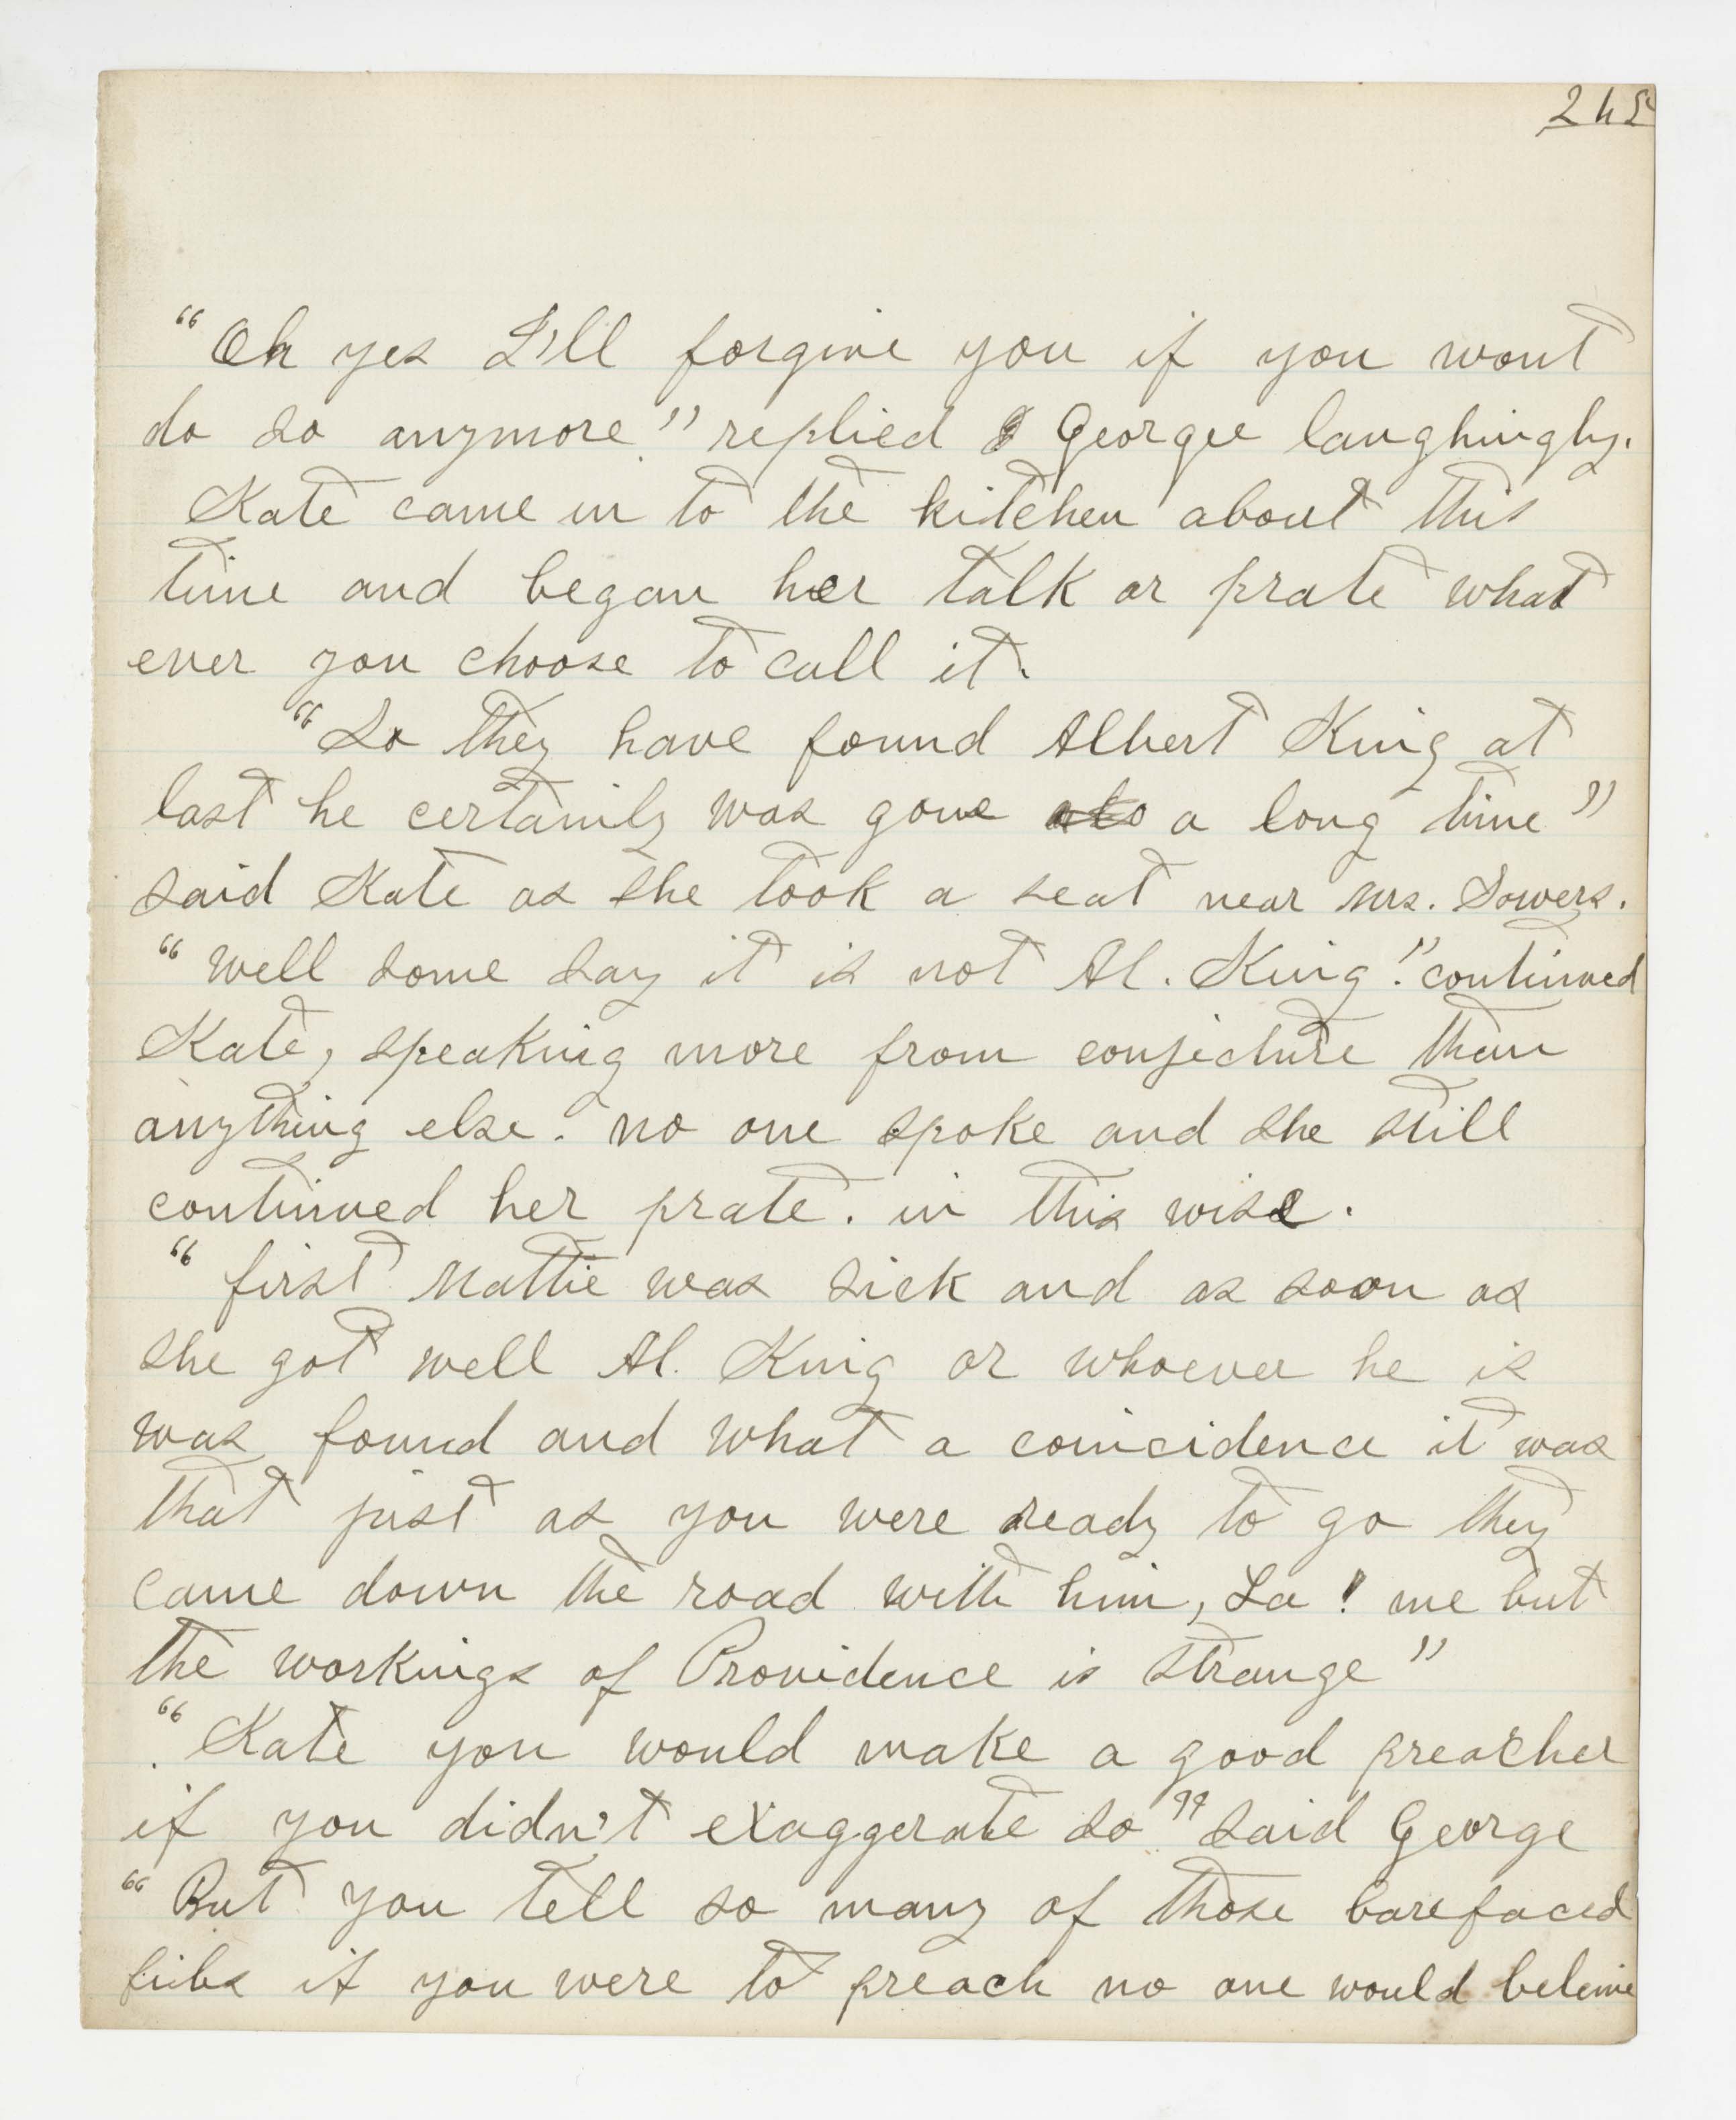 245
"Oh yes I'll forgive you if you wont
do so anymore." replied George laughingly.
Kate came in to the kitchen about this
time and began her talk or prate what
ever you choose to call it.
"So they have found Albert King at
last he certainly was gone a long time"
said Kate as she took a seat near Mrs. Sowers.
"well some say it is not Al. King." continued
Kate, speaking more from conjecture than
anything else. no one spoke and she still
continued her prate. in this wise.
"first Mattie was sick and as soon as
she got well Al. King or whoever he is
was found and what a coincidence it was
that just as you were ready to go they
came down the road with him, La! me but
the workings of Providence is strange"
"Kate you would make a good preacher
if you didn't exaggerate so" said George
"But you tell so many of those barefaced
fibs if you were to preach no one would beleive